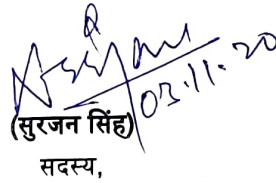 03.11.20
(सुरजन सिंह)
सदस्य,